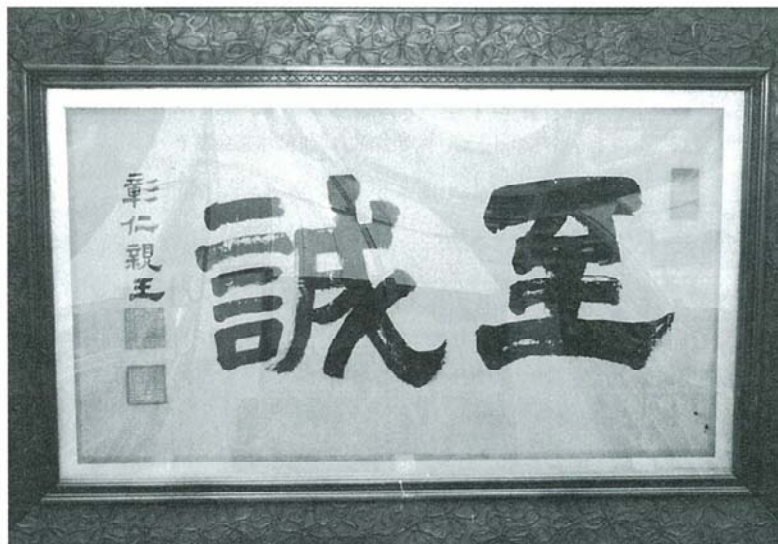 至誠
彰仁親王